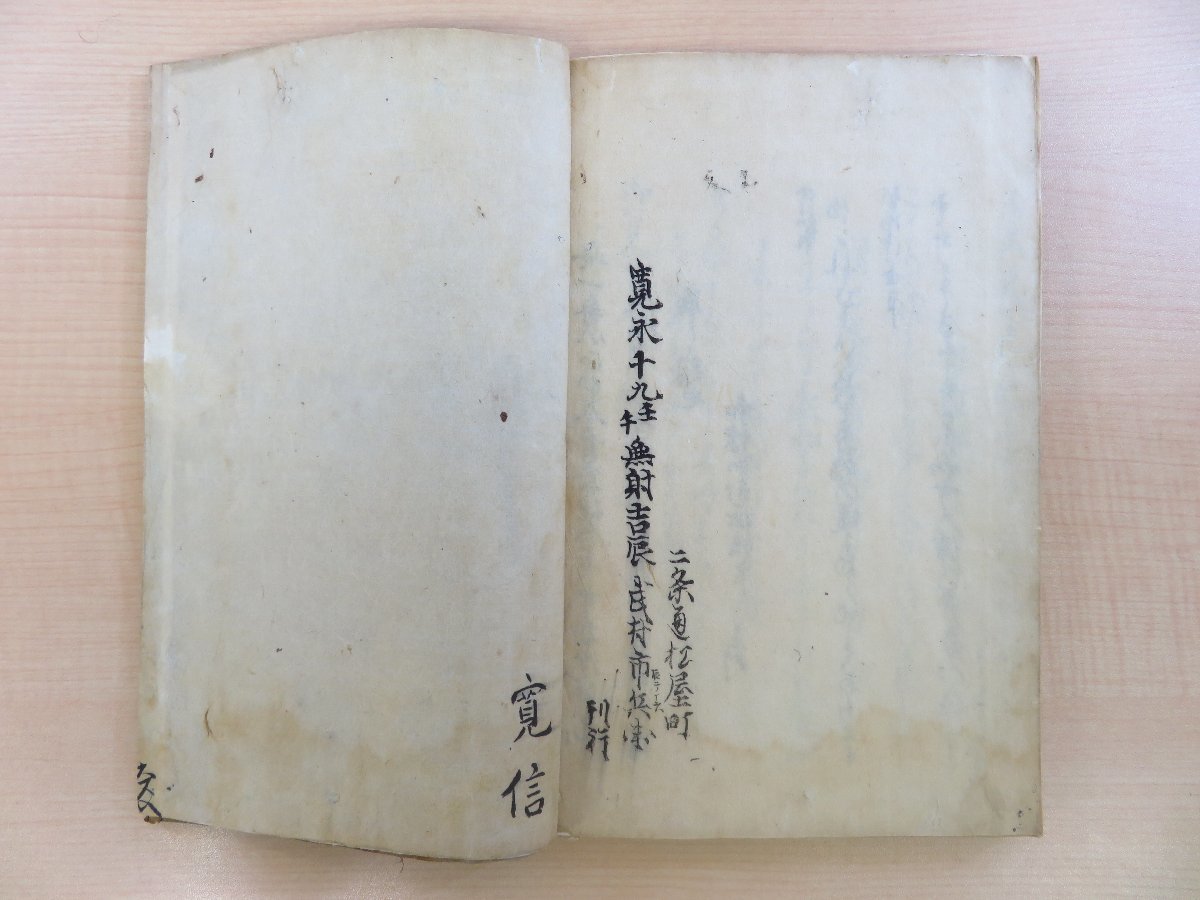 二条通松屋町
寛永十九壬午無射吉辰 武村市兵衛
刊行
寛信